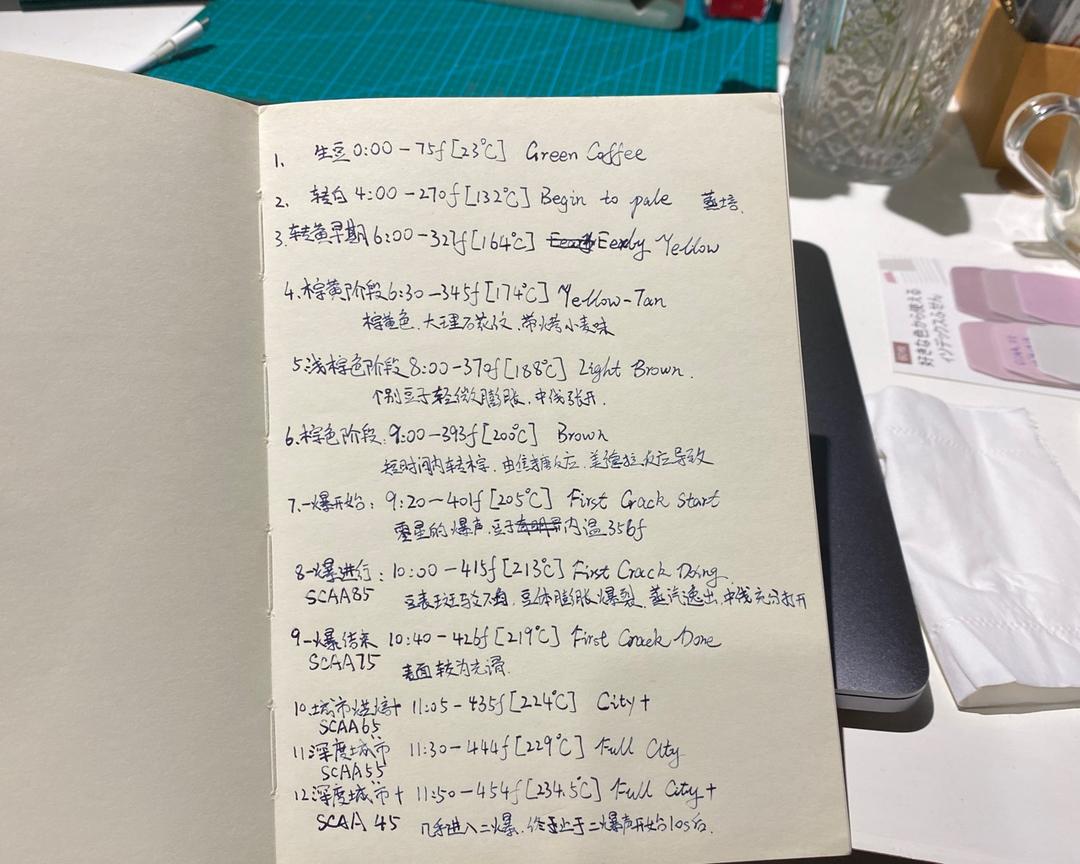 1. 生豆 0:00 - 75f [23℃] Green Coffee
2. 转白 4:00 - 270f [132℃] Begin to pale 蒸焙.
3. 转黄早期 6:00 - 327f [164℃] Eearly Yellow
4. 棕黄阶段 6:30 - 345f [174℃] Yellow-Tan
棕黄色、大理石花纹、带烤小麦味
5. 浅棕色阶段 8:00 - 370f [188℃] Light Brown.
个别豆子轻微膨胀、中线张开.
6. 棕色阶段. 9:00 - 393f [200℃] Brown
短时间内转棕. 由焦糖反应、美德拉反应导致
7. 一爆开始: 9:20 - 401f [205℃] First Crack Start
零星的爆声. 豆子内温356f
8 一爆进行: 10:00 - 415f [213℃] First Crack Doing.
SCAA85
豆表斑驳不均. 豆体膨胀爆裂、蒸汽逸出、中线充分打开
9 一爆结束 10:40 - 426f [219℃] First Crack Done
SCAA75
表面较为光滑.
10. 城市烘焙+ 11:05 - 435f [224℃] City+
SCAA65
11 深度城市 11:30 - 444f [229℃] Full City
SCAA55
12. 深度城市+ 11:50 - 454f [234.5℃] Full City+
SCAA 45
几乎进入二爆、终止于二爆声开始10s后.
好きな色から使える
インデックスふせん